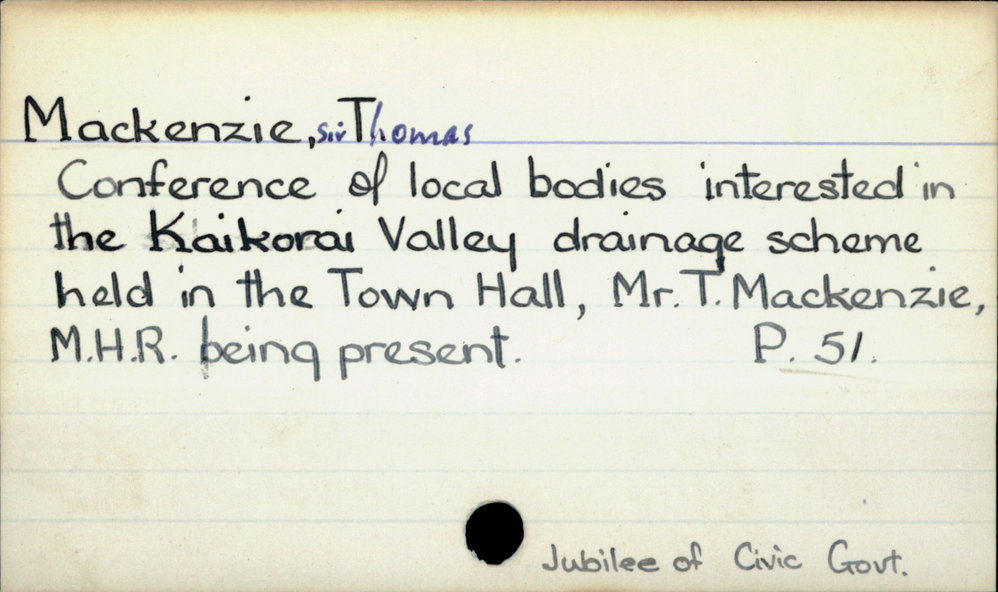 Mackenzie, sir Thomas
Conference of local bodies interested in
the Kaikorai Valley drainage scheme
held in the Town Hall, Mr. T. Mackenzie,
M.H.R. being present. P. 51.
Jubilee of Civic Govt.